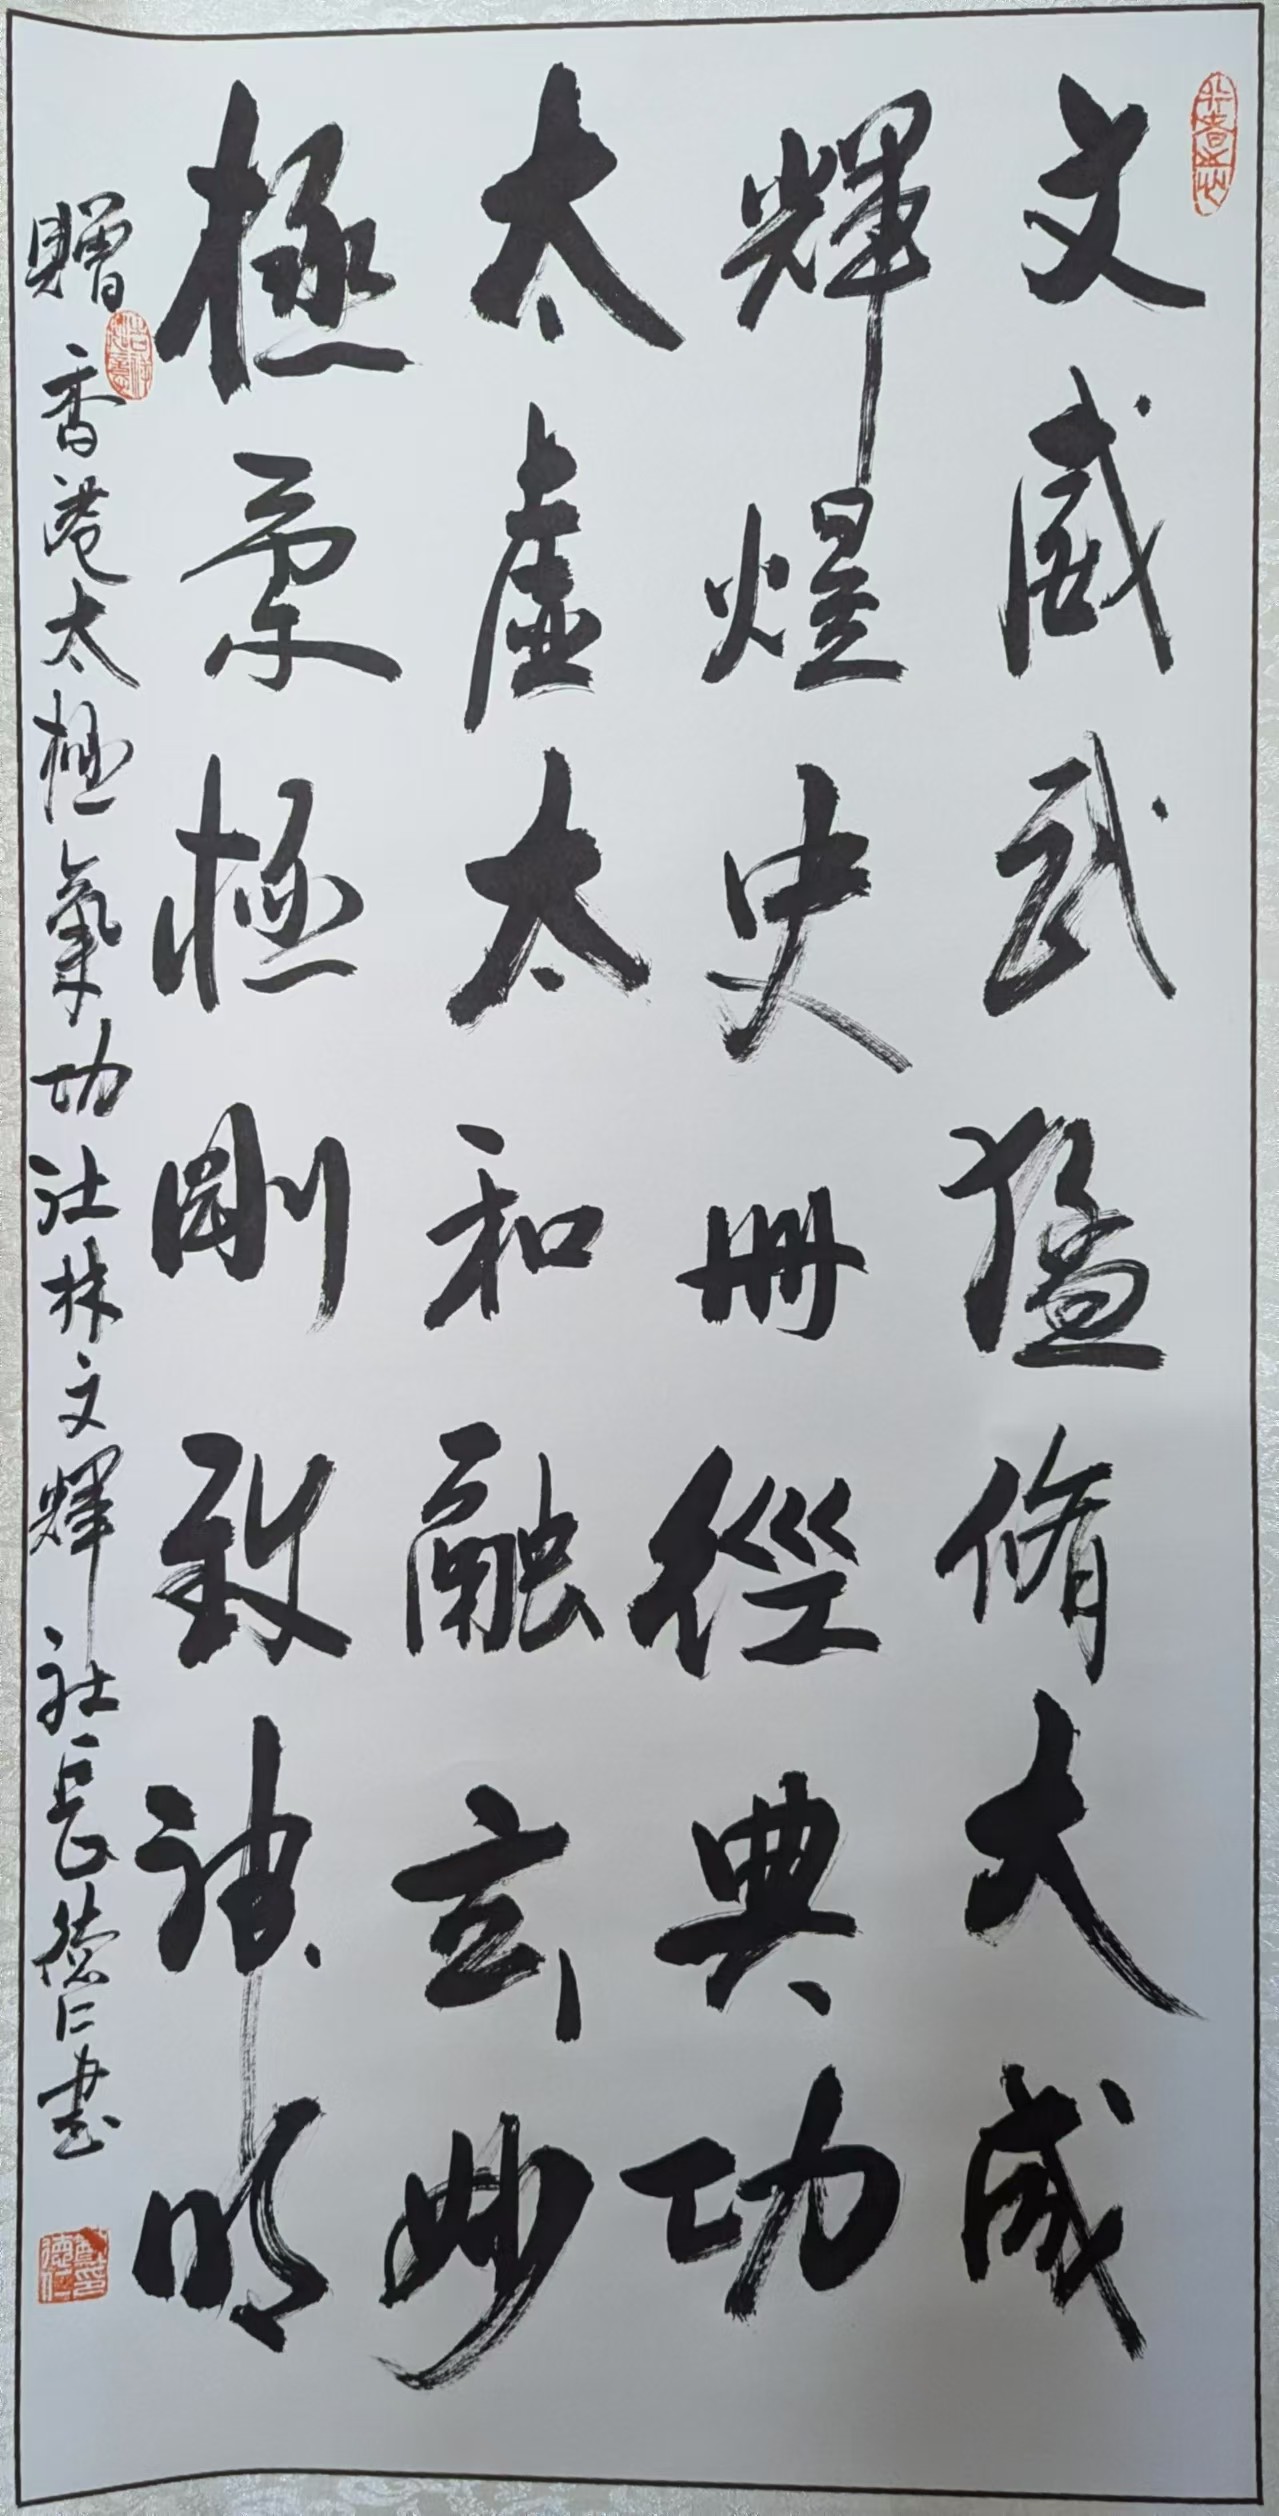 文威武猛脩大成
輝煌史冊經典功
太虛太和融玄妙
極柔極剛致神明
贈香港太極氣功社林文輝社長德仁書